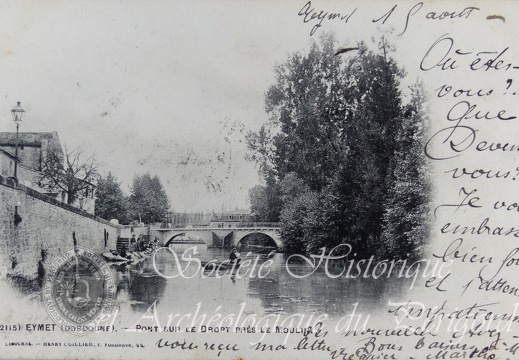 Eymet 15 août
Où êtes-
vous?
Que
Devenez
vous?
Je vous
embrasse
bien fort
et j'attends
impatiemment
nouvelles
Bons baisers
vous reçu ma lettre
Société Historique
et Archéologique du Périgord
2115) EYMET (DORDOGNE). — PONT SUR LE DROPT PRÈS LE MOULIN
LIBOURNE. — HENRY GUILLIER, F. Fonneuve, 44.